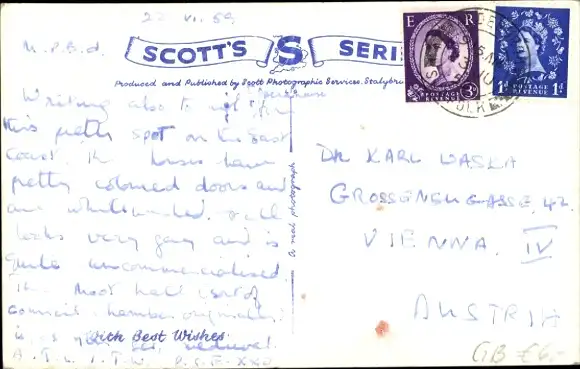 22 VI. 59
M.P.B.d.
SCOTT'S S SERI
Produced and Published by Scott Photographic Services, Stalybri
Writing also to
this pretty spot on the East
Coast. The houses have
pretty coloured doors and
are whitewashed. all
looks very gay and is
quite uncommercialised.
The Moot hall (sort of
council chamber originally)
is
With Best Wishes
A real photograph
E R
POSTAGE REVENUE 3D
1D POSTAGE REVENUE 1D
DR KARL WASKA
GROSSENEUGASSE 42
VIENNA. IV
AUSTRIA
GB £6.-